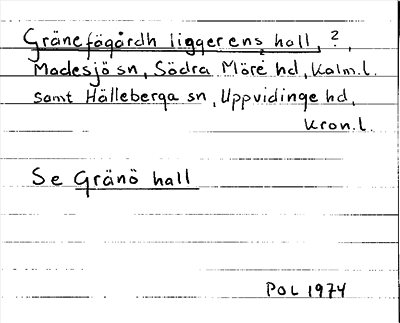 Gränefägårdh liggerens hall, ?,
Madesjö sn, Södra Möre hd, Kalm.l.
samt Hälleberga sn, Uppvidinge hd,
Kron.l.
Se Gränö hall
POL 1974